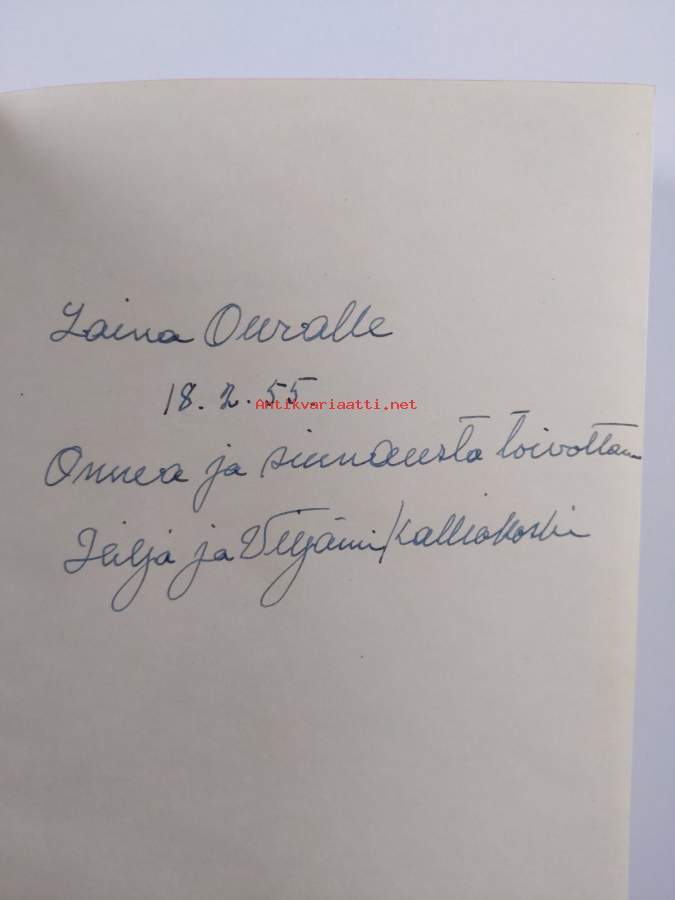 Laina Ouralle
18. 2. 55.
Antikvariaatti.net
Onnea ja siunausta toivottaa
ja Viljami Kalliokoski